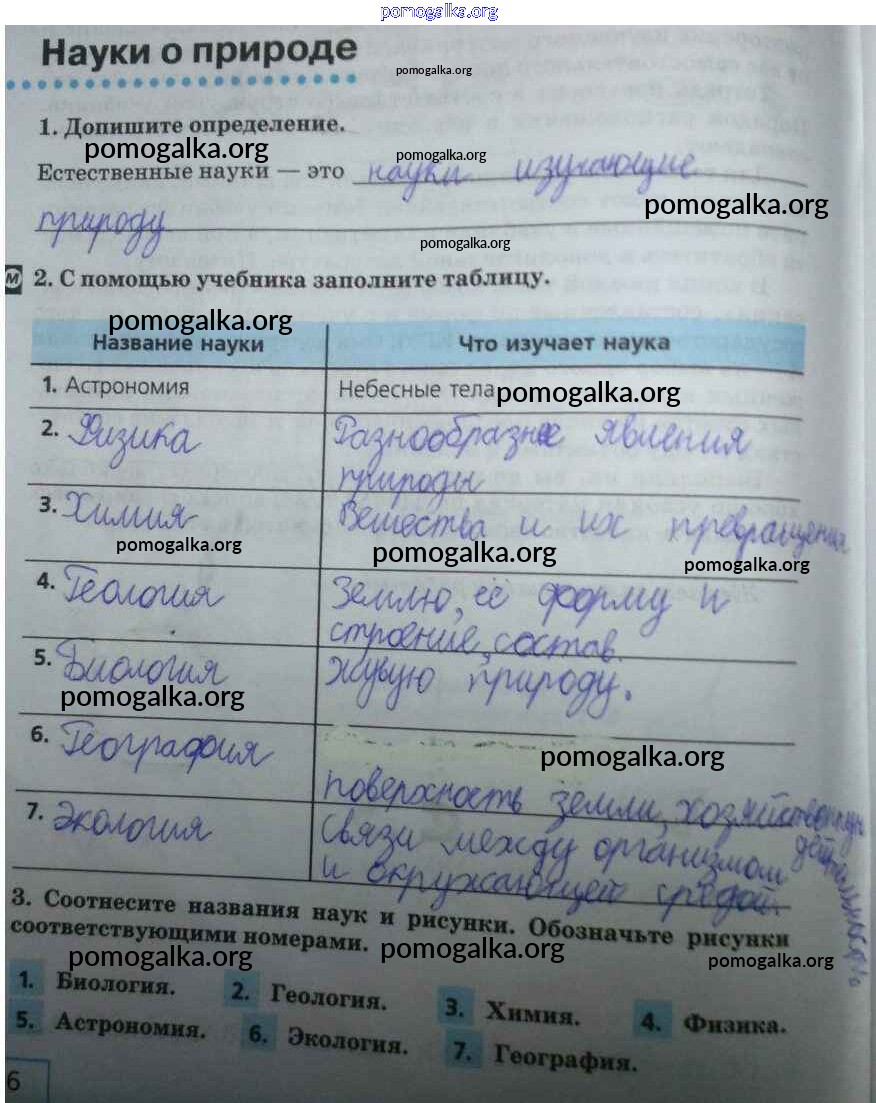 pomogalka.org
Науки о природе
pomogalka.org
1. Допишите определение.
pomogalka.org
pomogalka.org
Естественные науки — это науки изучающие
pomogalka.org
природу
pomogalka.org
М 2. С помощью учебника заполните таблицу.
pomogalka.org
Название науки Что изучает наука
1. Астрономия Небесные тела pomogalka.org
2. Физика Разнообразные явления
природы
3. Химия Вещества и их превращения
pomogalka.org pomogalka.org pomogalka.org
4. Геология Землю, её форму и
строение, состав.
5. Биология живую природу.
pomogalka.org
6. География
pomogalka.org
поверхность земли, хозяйственную
деятельность
7. Экология связи между организмом
и окружающей средой.
3. Соотнесите названия наук и рисунки. Обозначьте рисунки
соответствующими номерами.
pomogalka.org pomogalka.org pomogalka.org
1. Биология. 2. Геология. 3. Химия. 4. Физика.
5. Астрономия. 6. Экология. 7. География.
6